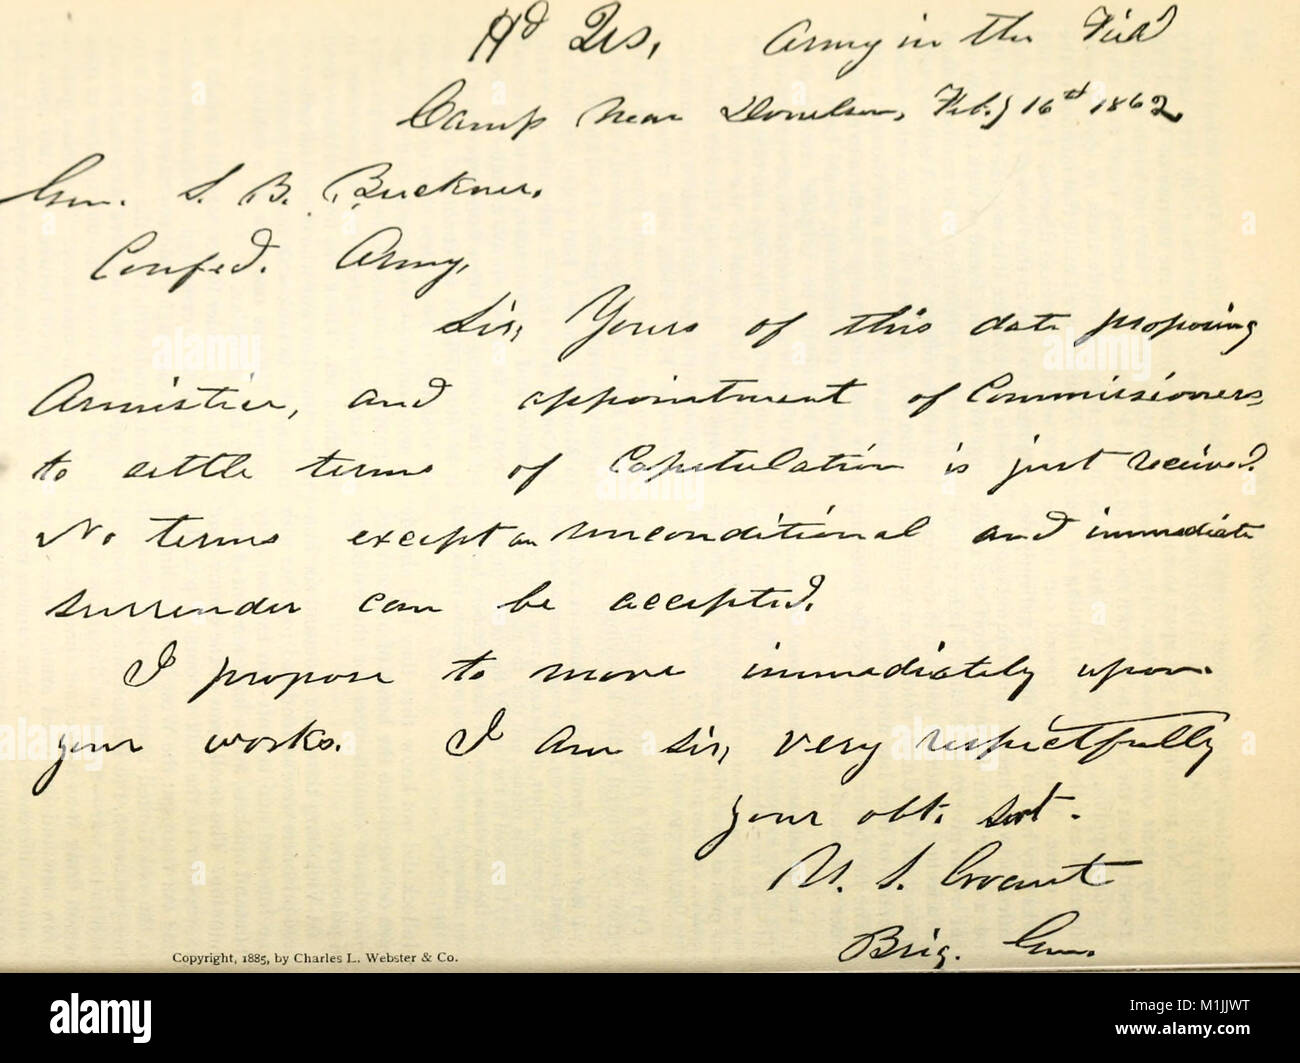 Hd Qrs, Army in the Field
Camp Near Donelson, Feb.y 16th 1862
Gen. S. B. Buckner,
Confed. Army,
Sir, Yours of this date proposing
Armistice, and appointment of Commissioners,
to settle terms of Capitulation is just received.
No terms except an unconditional and immediate
surrender can be accepted.
I propose to move immediately upon
your works. I am sir, very respectfully
your obt. svt.
U. S. Grant
Brig. Gen.
Copyright, 1885, by Charles L. Webster & Co.
alamy
alamy
alamy
alamy
alamy
alamy
alamy
Image ID: M1JJWT
www.alamy.com